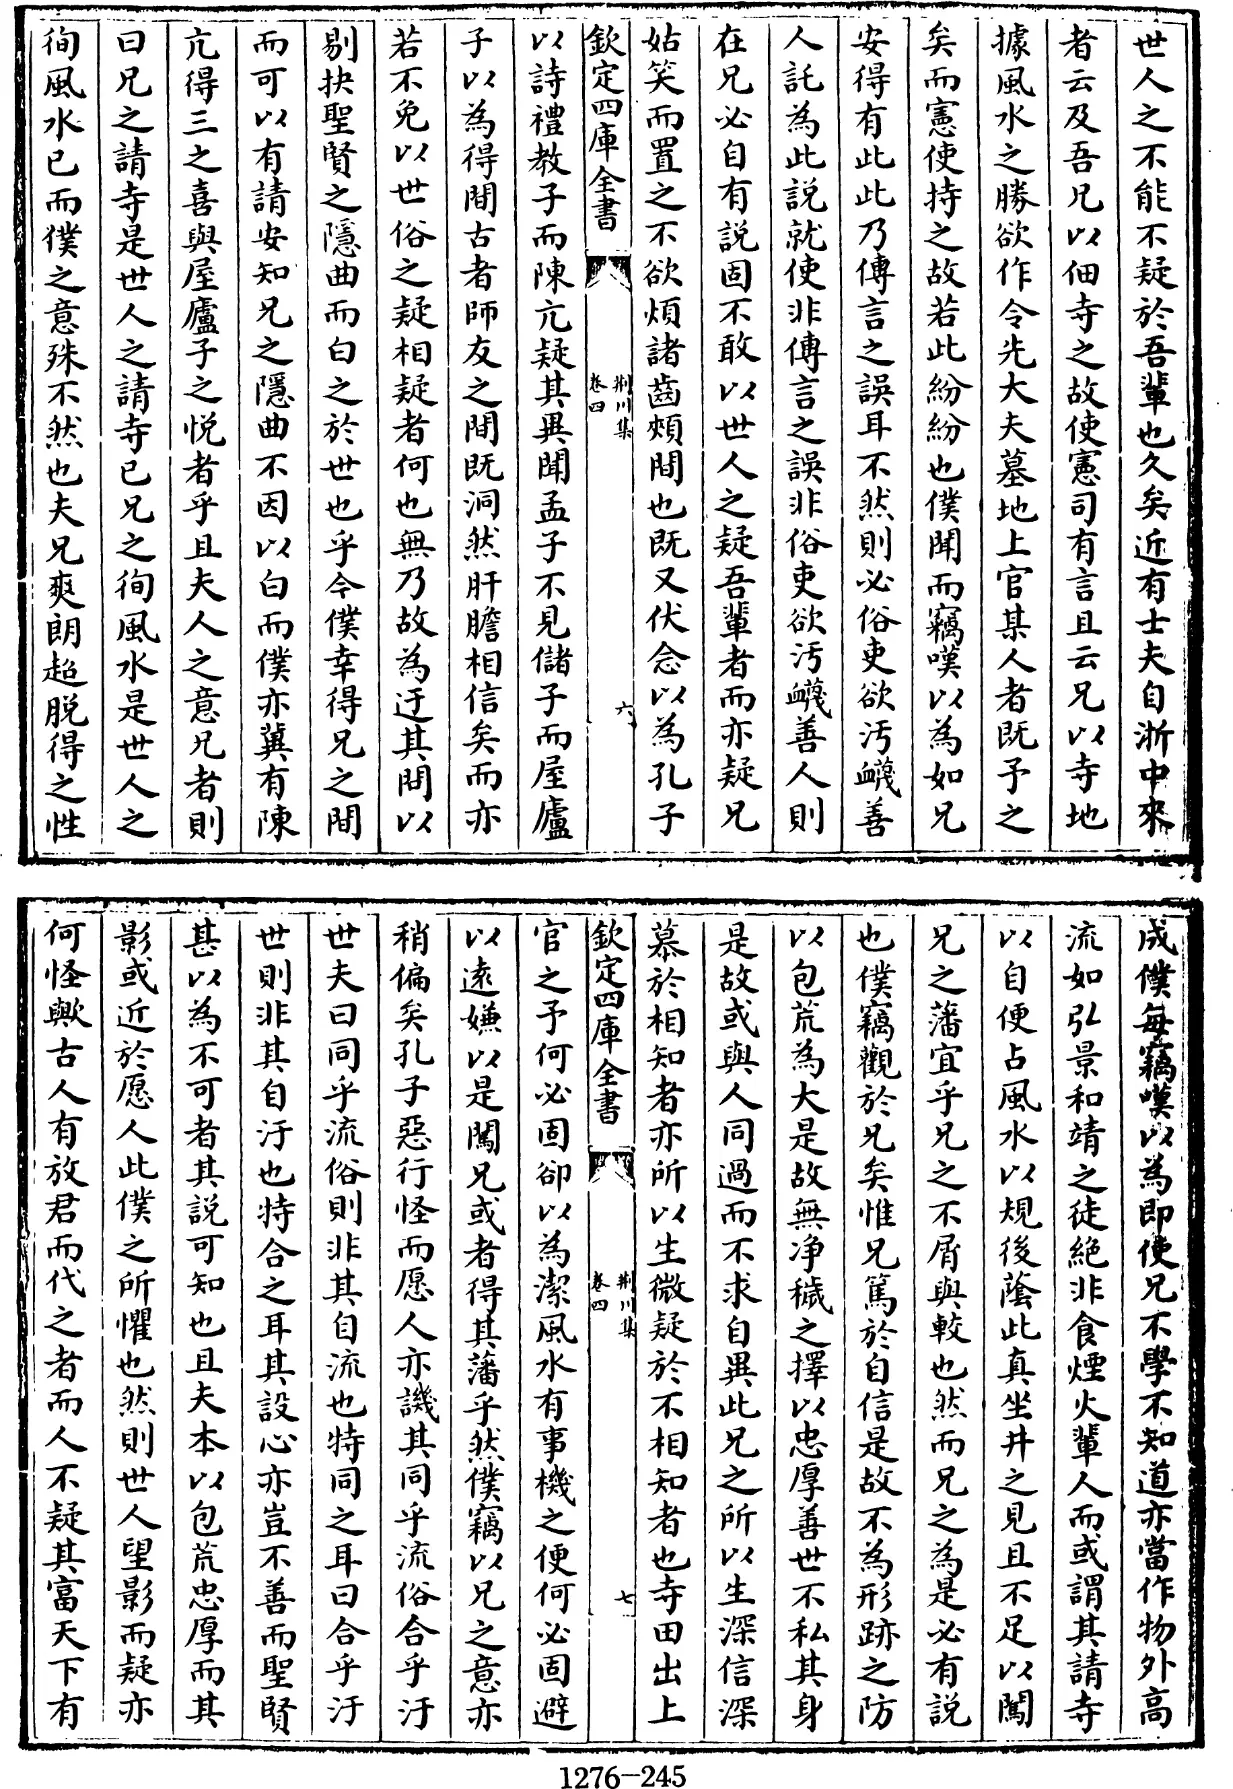 世人之不能不疑於吾輩也久矣近有士夫自浙中來
者云及吾兄以佃寺之故使憲司有言且云兄以寺地
據風水之勝欲作令先大夫墓地上官某人者既予之
矣而憲使持之故若此紛紛也僕聞而竊嘆以為如兄
安得有此此乃傳言之誤耳不然則必俗吏欲汚衊善
人託為此説就使非傳言之誤非俗吏欲汚衊善人則
在兄必自有説固不敢以世人之疑吾輩者而亦疑兄
姑笑而置之不欲煩諸齒頰間也既又伏念以為孔子
欽定四庫全書
荆川集
卷四
六
以詩禮教子而陳亢疑其異聞孟子不見儲子而屋廬
子以為得間古者師友之間既洞然肝膽相信矣而亦
若不免以世俗之疑相疑者何也無乃故為迂其問以
剔抉聖賢之隱曲而白之於世也乎今僕幸得兄之間
而可以有請安知兄之隱曲不因以白而僕亦冀有陳
亢得三之喜與屋廬子之悦者乎且夫人之意兄者則
曰兄之請寺是世人之請寺已兄之徇風水是世人之
徇風水已而僕之意殊不然也夫兄爽朗超脱得之性
成僕每竊嘆以為即使兄不學不知道亦當作物外高
流如弘景和靖之徒絶非食煙火輩人而或謂其請寺
以自便占風水以規後蔭此真坐井之見且不足以闖
兄之藩宜乎兄之不屑與較也然而兄之為是必有説
也僕竊觀於兄矣惟兄篤於自信是故不為形跡之防
以包荒為大是故無净穢之擇以忠厚善世不私其身
是故或與人同過而不求自異此兄之所以生深信深
慕於相知者亦所以生微疑於不相知者也寺田出上
欽定四庫全書
荆川集
卷四
七
官之予何必固卻以為潔風水有事機之便何必固避
以遠嫌以是闖兄或者得其藩乎然僕竊以兄之意亦
稍偏矣孔子惡行怪而愿人亦譏其同乎流俗合乎汙
世夫曰同乎流俗則非其自流也特同之耳曰合乎汙
世則非其自汙也特合之耳其設心亦豈不善而聖賢
甚以為不可者其説可知也且夫本以包荒忠厚而其
影或近於愿人此僕之所懼也然則世人望影而疑亦
何怪歟古人有放君而代之者而人不疑其富天下有
1276-245